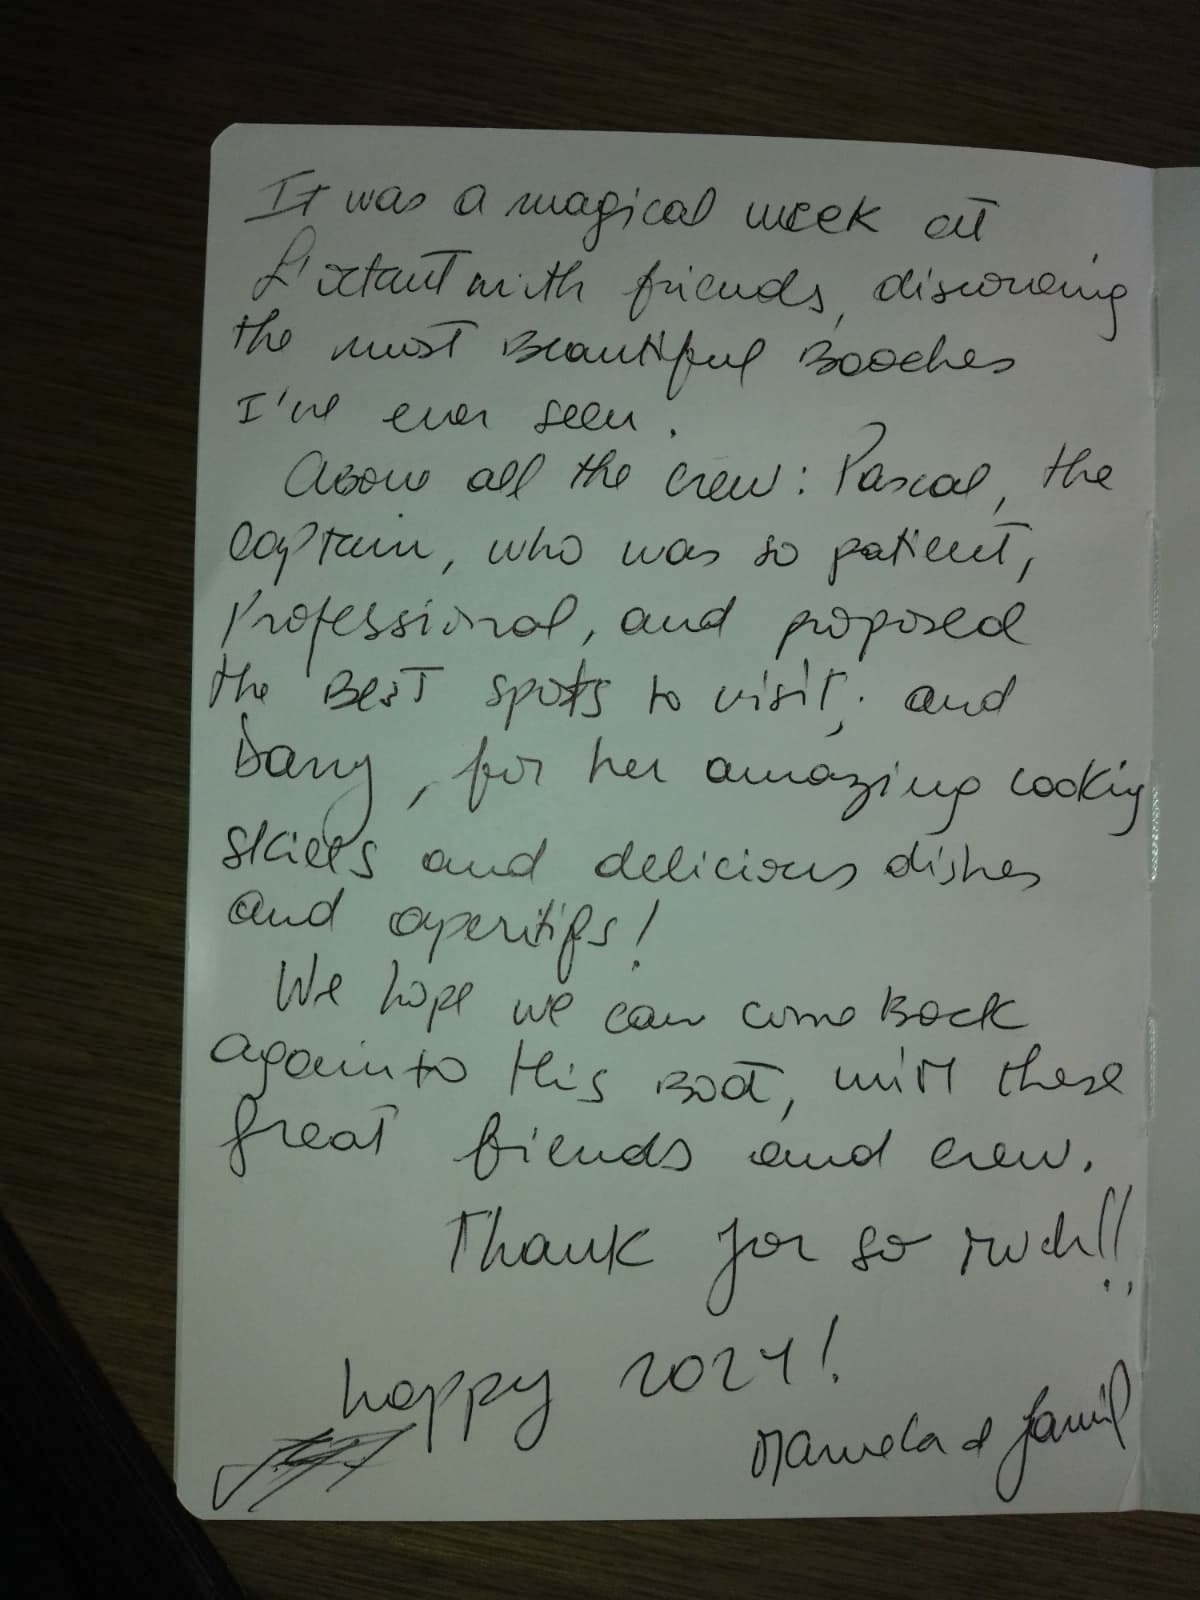 It was a magical week at
with friends, discovering
the most Beautiful Beaches
I've ever seen.
Above all the crew: Pascal, the
captain, who was so patient,
Professional, and proposed
the BEST spots to visit; and
Dany, for her amazing cooking
skills and delicious dishes
and aperitifs!
We hope we can come Back
again to this Boat, with these
great friends and crew.
Thank for so much!!
happy 2024!